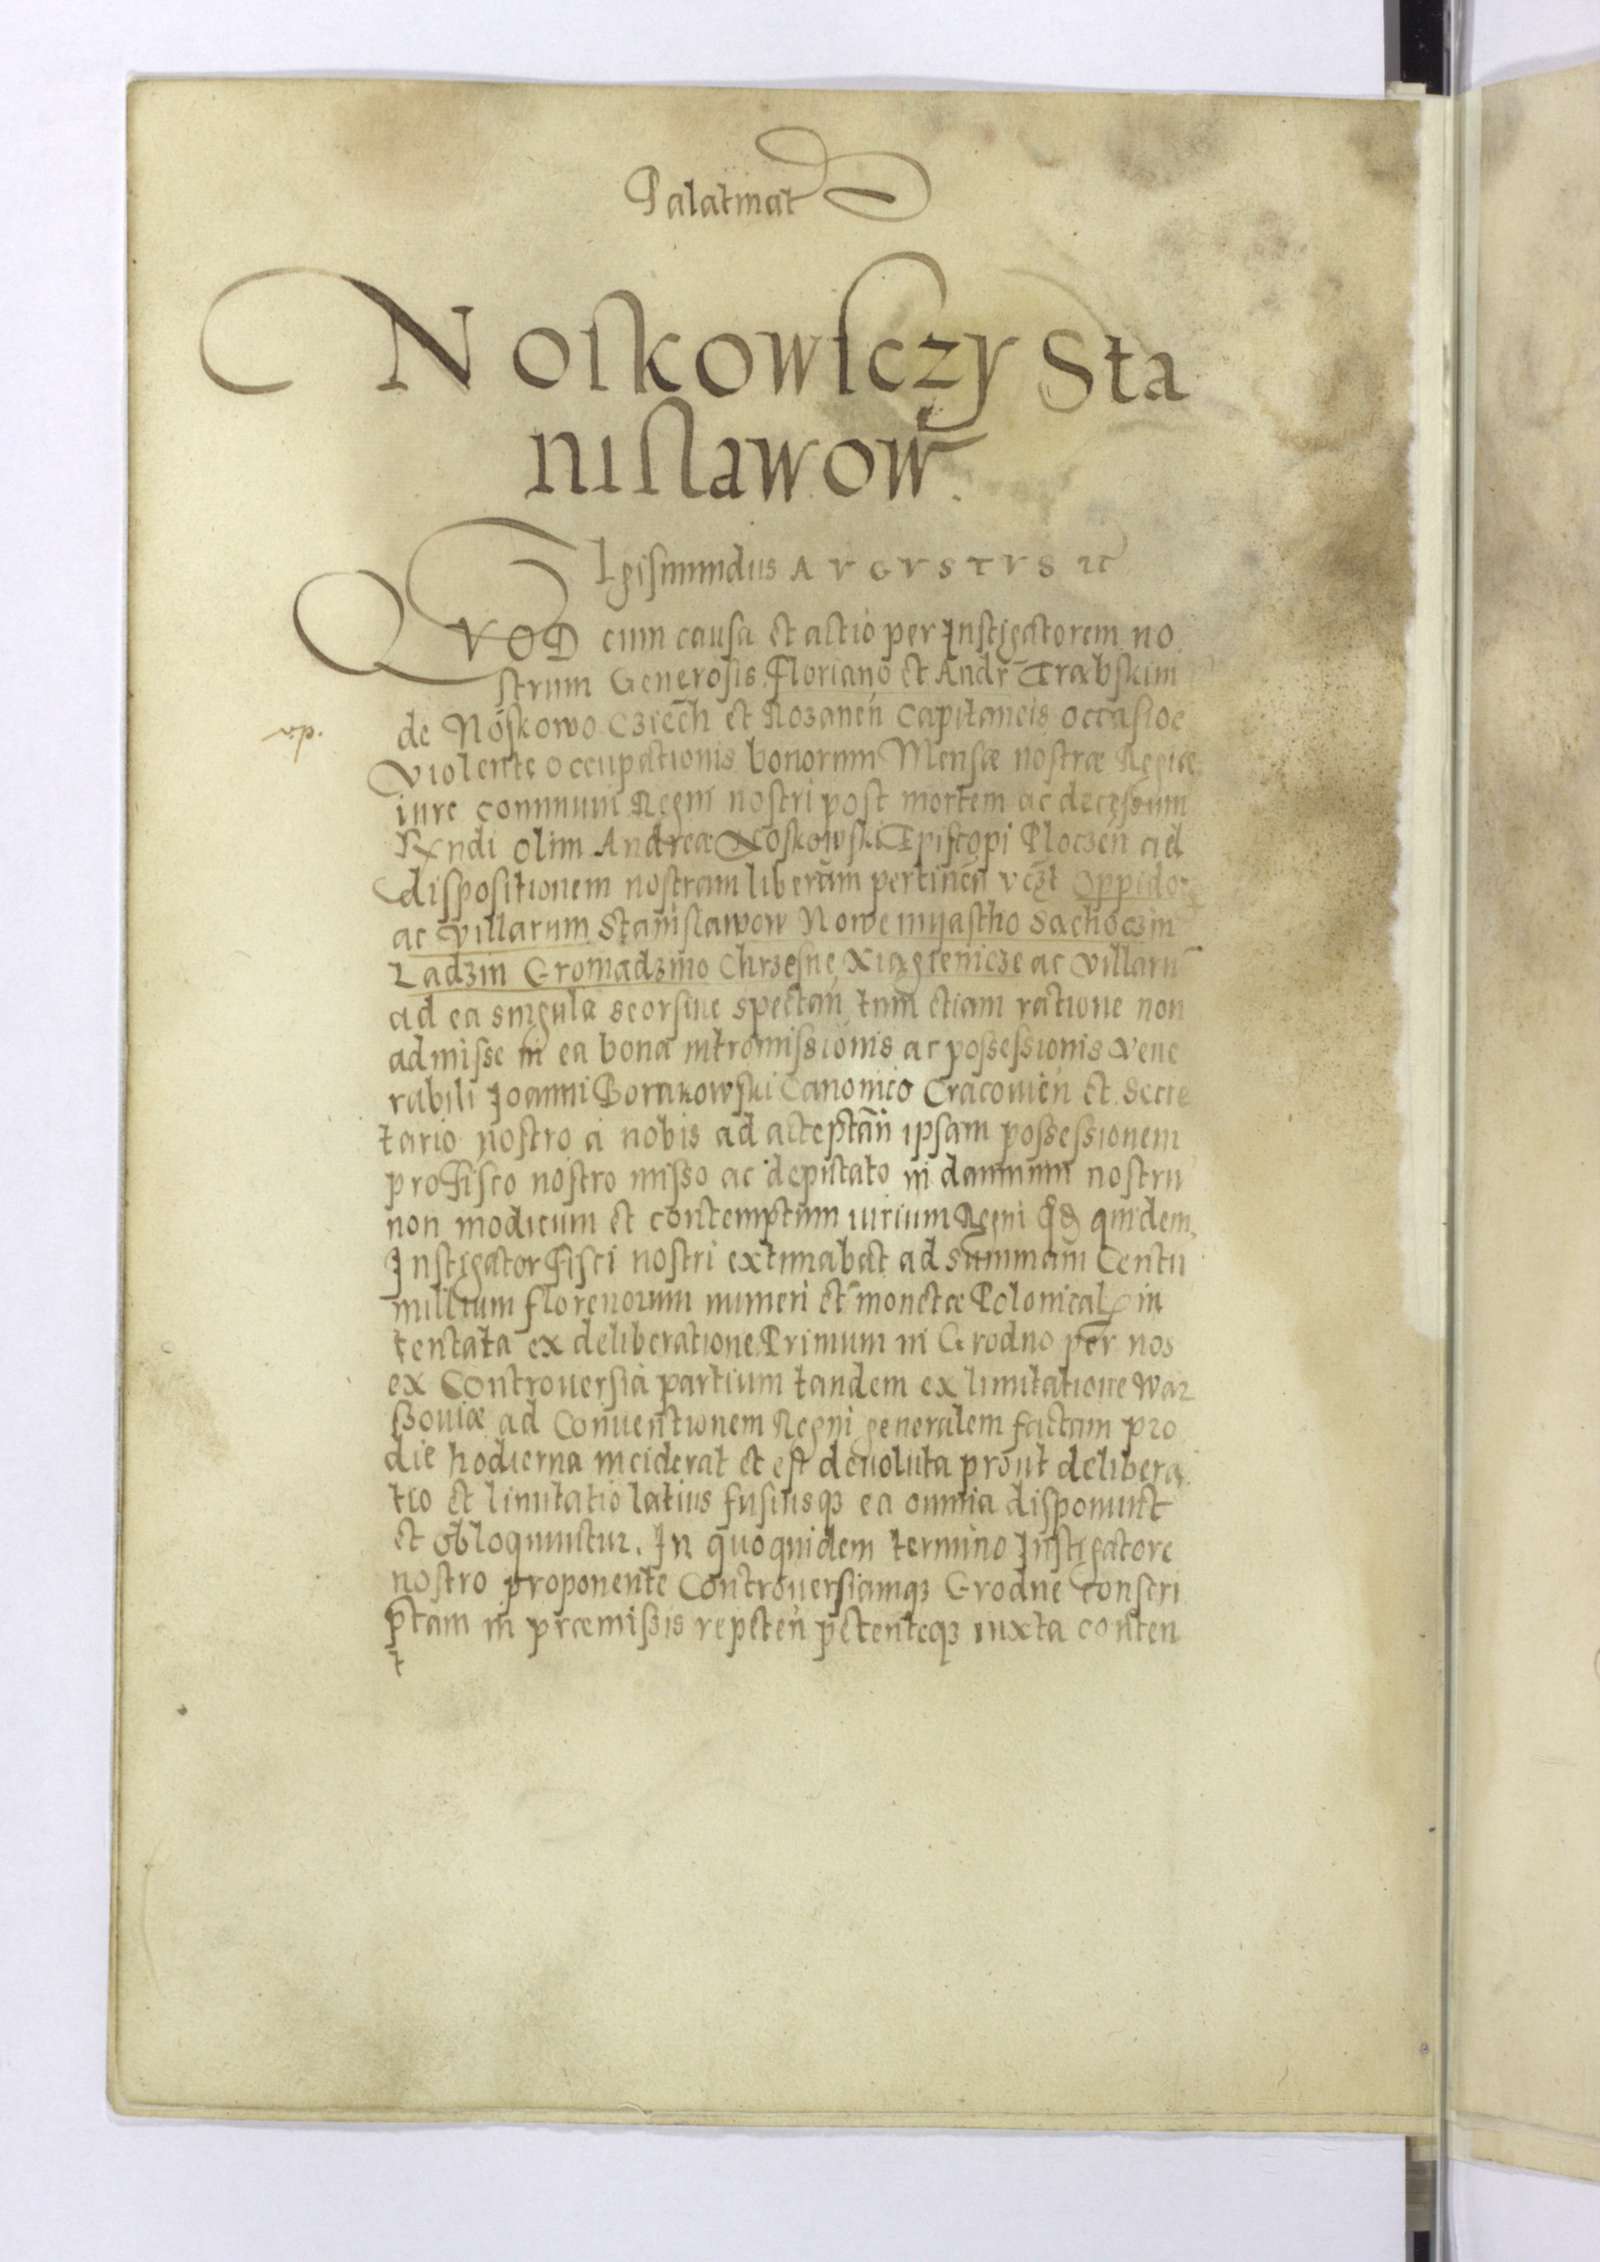 Palatinat
Noskowsczy Sta
nislawow.
Sigismundus AVGVSTVS ec
QVOD cum causa et actio per Instigatorem no
strum Generosis Floriano et Andr Trabskim
de Noskowo Cziech et Rozanen Capitaneis occasioe
vp.
violente occupationis bonorum Mensæ nostræ Regiæ
iure communi Regni nostri post mortem ac decessum
Rndi olim Andreæ Noskowski Episcopi Ploczen ad
dispositionem nostram liberam pertinen vczt Oppidor
ac villarum Stanislawow Nowe myastho Sachoczin
Zadzin Gromadzino Chrzesne Xiazgienicze ac villaru
ad ea singula seorsiue spectan tum etiam ratione non
admisse in ea bona intromissionis ac possessionis Vene
rabili Joanni Borukowski Canonico Cracouien et Secre
tario nostro a nobis ad acceptan ipsam possessionem
pro Fisco nostro misso ac deputato in damnum nostru
non modicum et contemptum iurium Regni qd quidem
Instigator Fisci nostri extimabat ad summam Centu
millium florenorum numeri et monetæ Polonical in
tentata ex deliberatione Primum in Grodno per nos
ex Controuersia partium tandem ex limitatione War
ssouiæ ad Conuentionem Regni generalem factam pro
die hodierna inciderat et est deuoluta prout delibera
tio et limitatio latius fusiusq ea omnia disponunt
et obloquuntur. In quoquidem termino Instigatore
nostro proponente Controuersiamq Grodne conscri
ptam in præmissis repeten petenteq iuxta conten
t